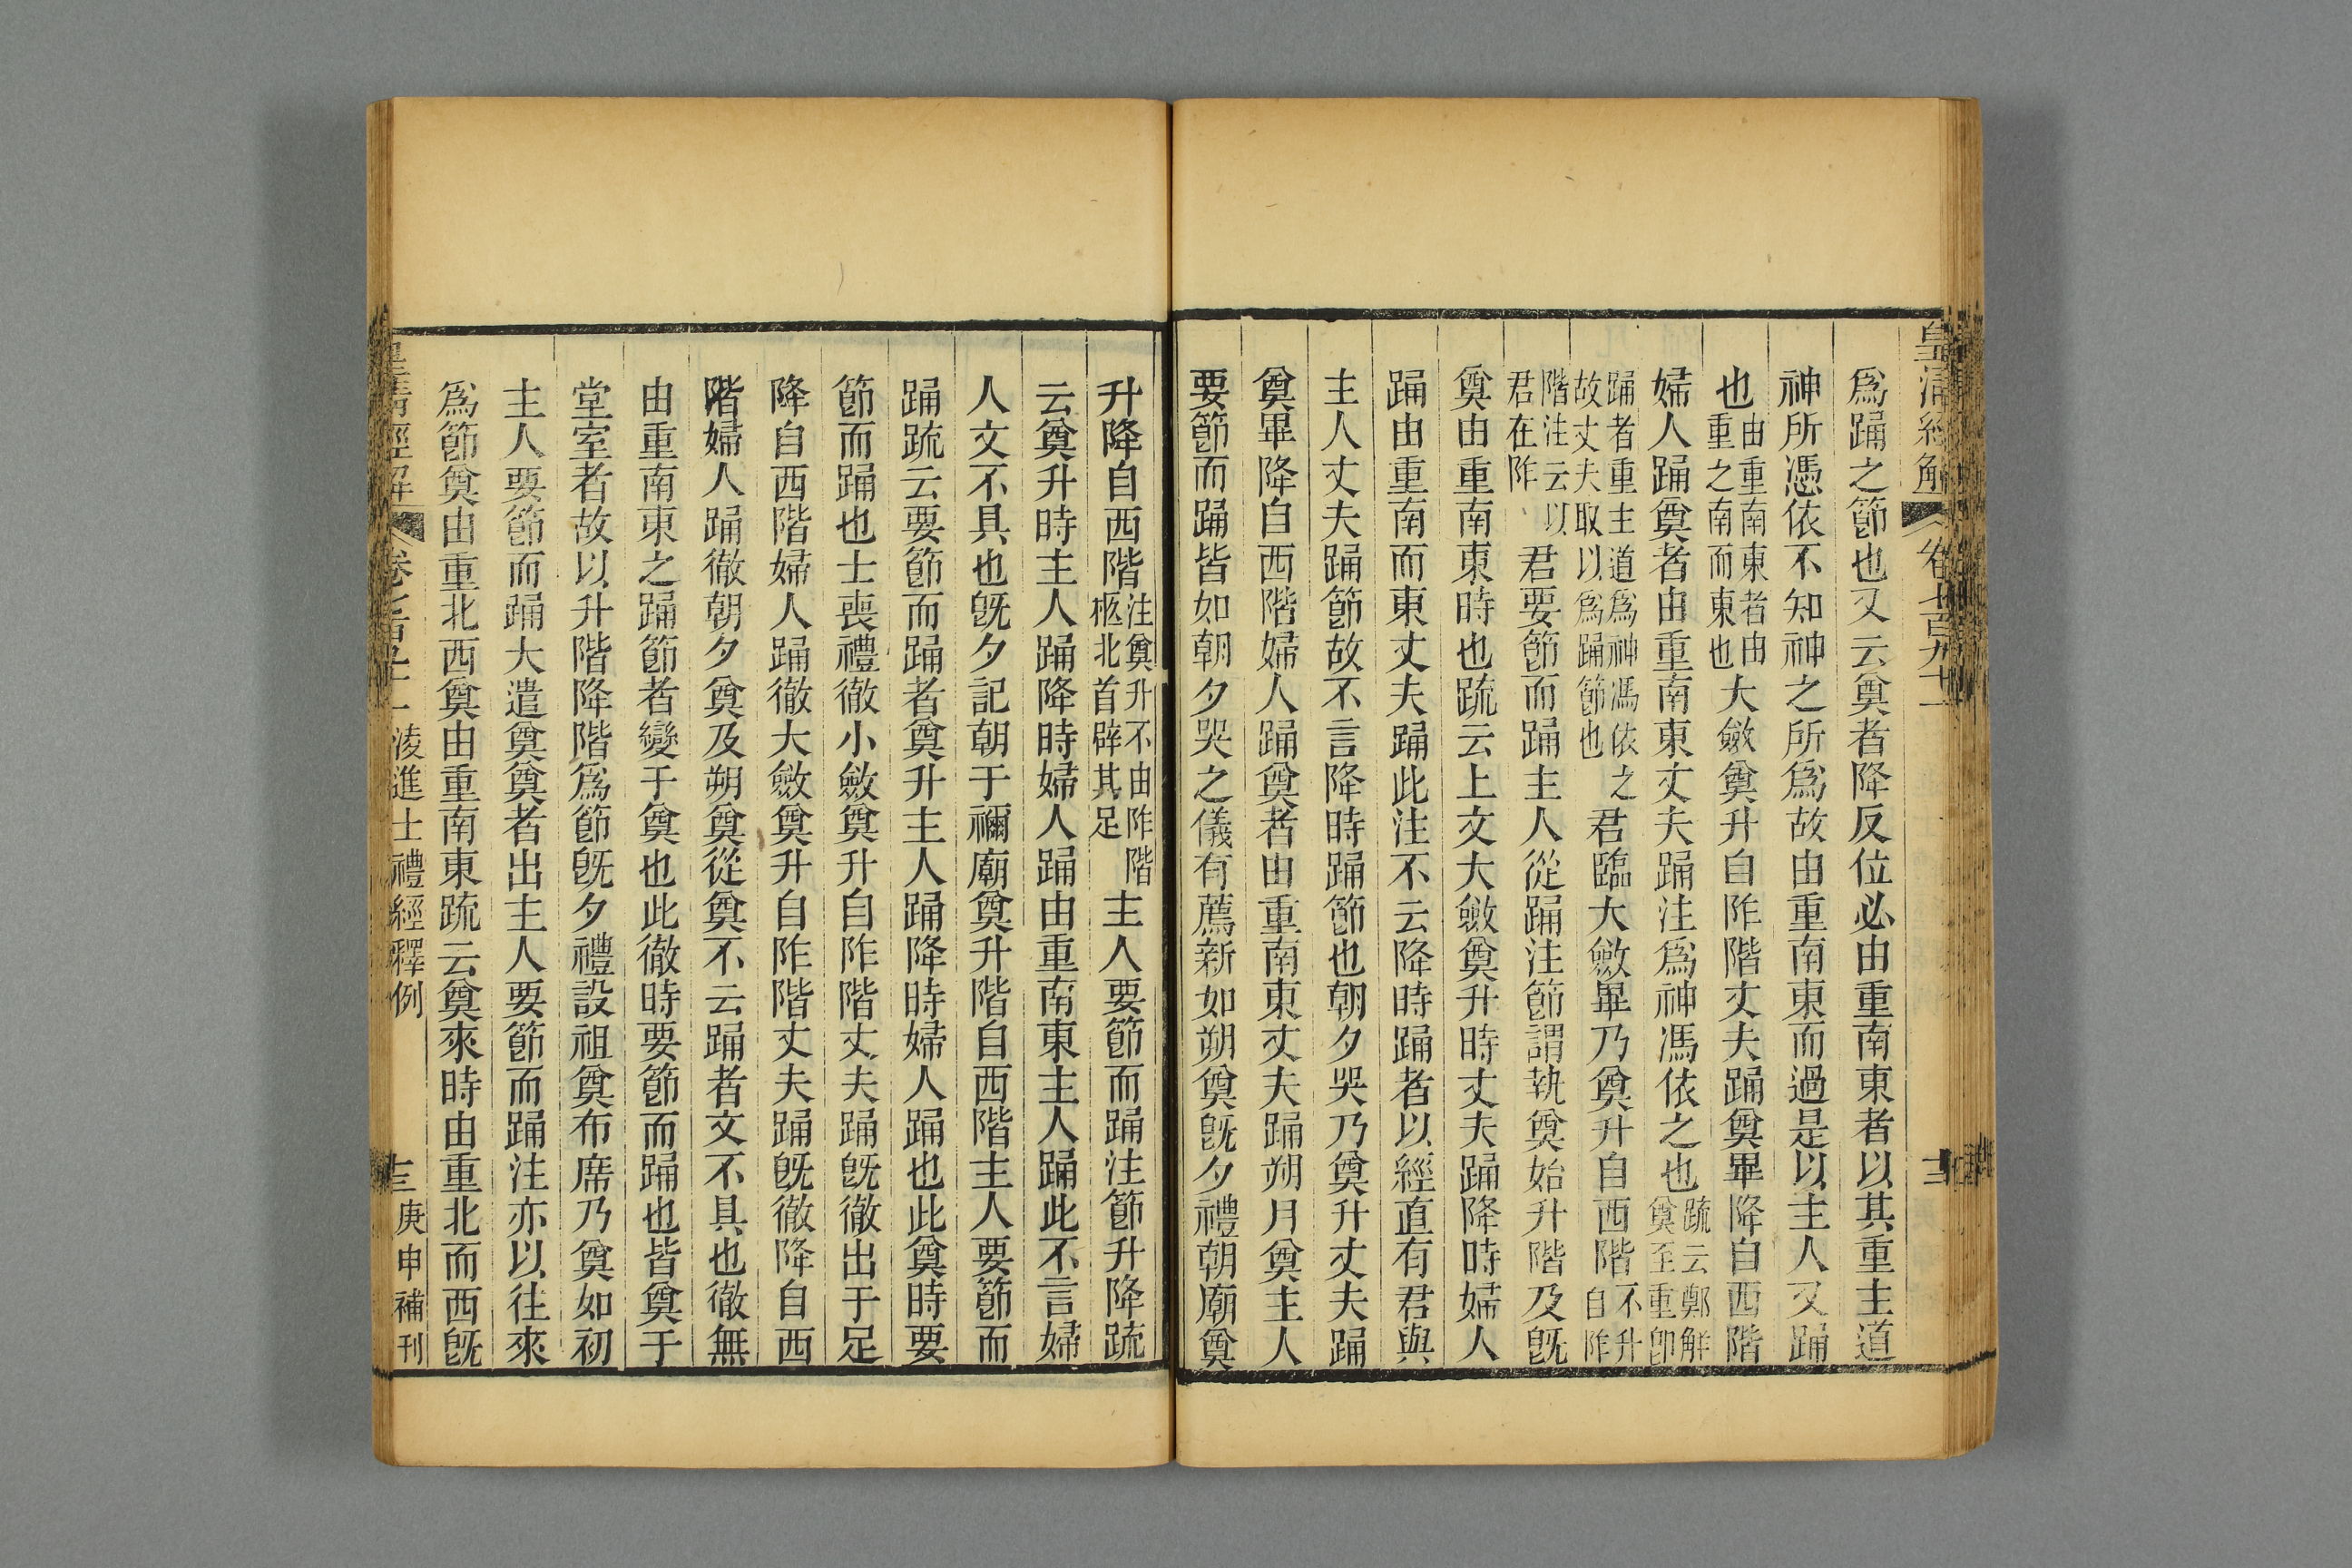 皇清經解
卷七百九十一
爲踊之節也又云奠者降反位必由重南東者以其重主道
神所憑依不知神之所爲故由重南東而過是以主人又踊
也由重南東者由重之南而東也大斂奠升自阼階丈夫踊奠畢降自西階
婦人踊奠者由重南東丈夫踊注爲神馮依之也疏云鄭解奠至重卽
踊者重主道爲神馮依之故丈夫取以爲踊節也君臨大斂畢乃奠升自西階不升自阼
階注云以君在阼君要節而踊主人從踊注節謂執奠始升階及旣
奠由重南東時也疏云上文大斂奠升時丈夫踊降時婦人
踊由重南而東丈夫踊此注不云降時踊者以經直有君與
主人丈夫踊節故不言降時踊節也朝夕哭乃奠升丈夫踊
奠畢降自西階婦人踊奠者由重南東丈夫踊朔月奠主人
要節而踊皆如朝夕哭之儀有薦新如朔奠旣夕禮朝廟奠
升降自西階注奠升不由阼階柩北首辟其足主人要節而踊注節升降疏
云奠升時主人踊降時婦人踊由重南東主人踊此不言婦
人文不具也旣夕記朝于禰廟奠升階自西階主人要節而
踊疏云要節而踊者奠升主人踊降時婦人踊也此奠時要
節而踊也士喪禮徹小斂奠升自阼階丈夫踊旣徹出于足
降自西階婦人踊徹大斂奠升自阼階丈夫踊旣徹降自西
階婦人踊徹朝夕奠及朔奠從奠不云踊者文不具也徹無
由重南東之踊節者變于奠也此徹時要節而踊也皆奠于
堂室者故以升階降階爲節旣夕禮設祖奠布席乃奠如初
主人要節而踊大遣奠奠者出主人要節而踊注亦以往來
爲節奠由重北西奠由重南東疏云奠來時由重北而西旣
皇清經解
淩進士禮經釋例
庚申補刊